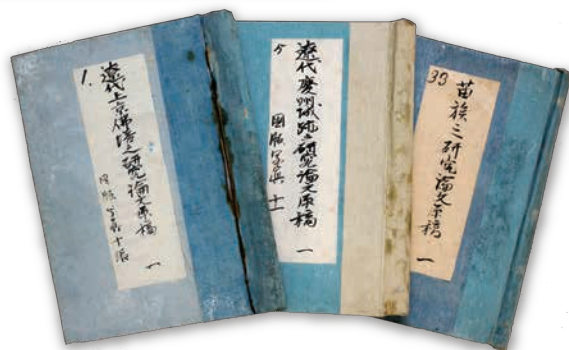 1.
遼代上京佛塔之研究論文原稿 一
図版写真十張
遼代慶 跡之研究論文原稿 一
図版写真 十一
33
苗族之研究論文原稿 一